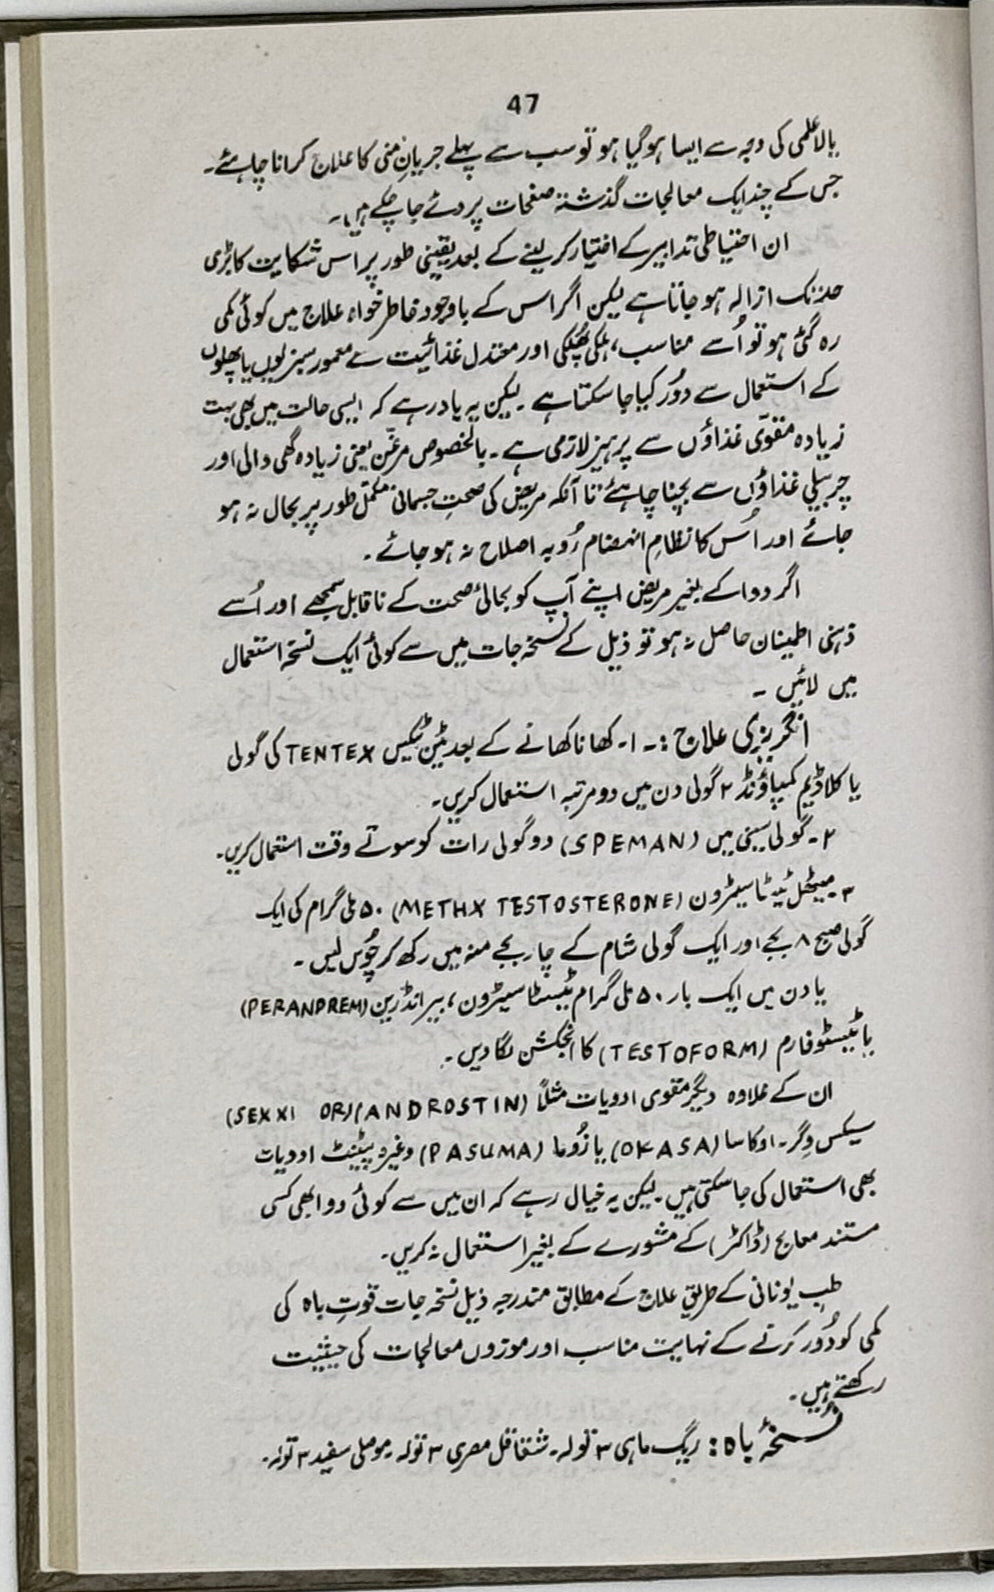 47
یا لاعلمی کی وجہ سے ایسا ہو گیا ہو تو سب سے پہلے جریانِ منی کا علاج کرانا چاہئے۔
جس کے چند ایک معالجات گذشتہ صفحات پر دئے جا چکے ہیں۔
ان احتیاطی تدابیر کے اختیار کر لینے کے بعد یقینی طور پر اس شکایت کا بڑی
حد تک ازالہ ہو جاتا ہے لیکن اگر اس کے باوجود خاطر خواہ علاج میں کوئی کمی
رہ گئی ہو تو اُسے مناسب، ہلکی پُھلکی اور معتدل غذائیت سے معمور سبزیوں یا پھلوں
کے استعمال سے دُور کیا جا سکتا ہے۔ لیکن یہ یاد رہے کہ ایسی حالت میں بھی بہت
زیادہ مقوّی غذاؤں سے پرہیز لازمی ہے۔ بالخصوص مرغّن یعنی زیادہ گھی والی اور
چربیلی غذاؤں سے بچنا چاہئے تا آنکہ مریض کی صحتِ جسمانی مکمل طور پر بحال نہ ہو
جائے اور اُس کا نظامِ انہضام رُو بہ اصلاح نہ ہو جائے۔
اگر دوا کے بغیر مریض اپنے آپ کو بحالیٔ صحت کے ناقابل سمجھے اور اُسے
ذہنی اطمینان حاصل نہ ہو تو ذیل کے نسخہ جات میں سے کوئی ایک نسخہ استعمال
میں لائیں۔
انگریزی علاج :۔ ۱۔ کھانا کھانے کے بعد ٹین ٹیکس TENTEX کی گولی
یا کلاڈیم کمپاؤنڈ ۲ گولی دن میں دو مرتبہ استعمال کریں۔
۲۔ گولی سپی مین (SPEMAN) دو گولی رات کو سوتے وقت استعمال کریں۔
۳۔ میتھل ٹیٹا سیٹرون (METHX TESTOSTERONE) ۵۰ ملی گرام کی ایک
گولی صبح ۸ بجے اور ایک گولی شام کے چار بجے منہ میں رکھ کر چُوس لیں۔
یا دن میں ایک بار ۵۰ ملی گرام ٹیسٹا سیٹرون، پیرانڈرین (PERANDREM)
یا ٹیسٹو فارم (TESTOFORM) کا انجکشن لگا دیں۔
ان کے علاوہ دیگر مقوی ادویات مثلاً (ANDROSTIN) (SEXXI OR)
سیکس وِگر۔ اوکاسا (OKASA) یا زُوما (PASUMA) وغیرہ پیٹینٹ ادویات
بھی استعمال کی جا سکتی ہیں۔ لیکن یہ خیال رہے کہ ان میں سے کوئی دوا بھی کسی
مستند معالج (ڈاکٹر) کے مشورے کے بغیر استعمال نہ کریں۔
طبِ یونانی کے طریقِ علاج کے مطابق مندرجہ ذیل نسخہ جات قوتِ باہ کی
کمی کو دُور کرنے کے نہایت مناسب اور موزوں معالجات کی حیثیت
رکھتے ہیں۔
نسخۂ باہ : ریگ ماہی ۳ تولہ۔ شقاقل مصری ۳ تولہ۔ موصلی سفید ۳ تولہ۔